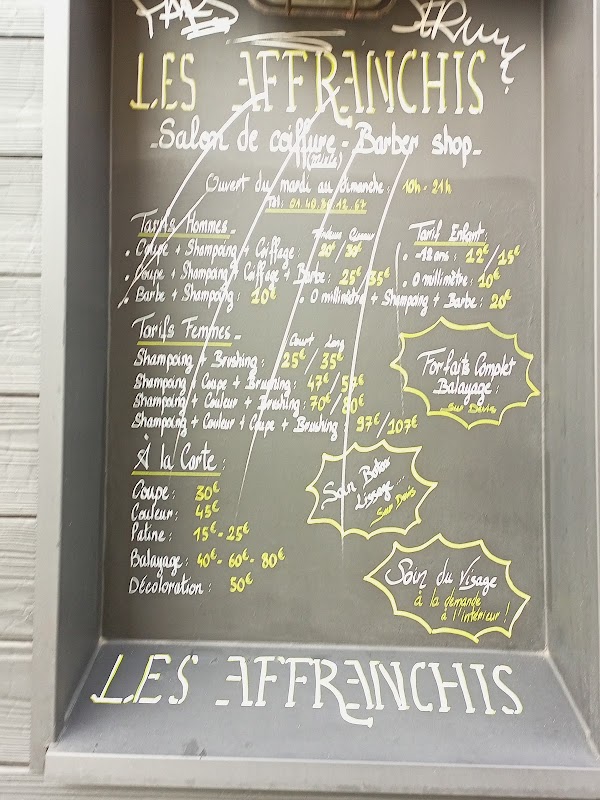 PARS
LES AFFRANCHIS
Salon de coiffure - Barber shop
(Mixte)
Ouvert du mardi au dimanche: 10h - 21h
Tarifs Hommes
. Coupe + Shampoing + Coiffage: 20€/30€
. Coupe + Shampoing + Coiffage + Barbe: 25€/35€
. Barbe + Shampoing: 20€
Tarif Enfant
. -12 ans: 12€/15€
. 0 millimètre: 10€
. 0 millimètre + Shampoing + Barbe: 20€
Tarifs Femmes
Court / Long
Shampoing + Brushing: 25€/35€
Shampoing + Coupe + Brushing: 47€/57€
Shampoing + Couleur + Brushing: 70€/80€
Shampoing + Couleur + Coupe + Brushing: 97€/107€
Forfaits Complet
Balayage:
Sur Devis
À la Carte:
Coupe: 30€
Couleur: 45€
Patine: 15€ - 25€
Balayage: 40€ - 60€ - 80€
Décoloration: 50€
Soin Botox
Lissage...
Sur Devis
Soin du Visage
à la demande
à l'intérieur!
LES AFFRANCHIS